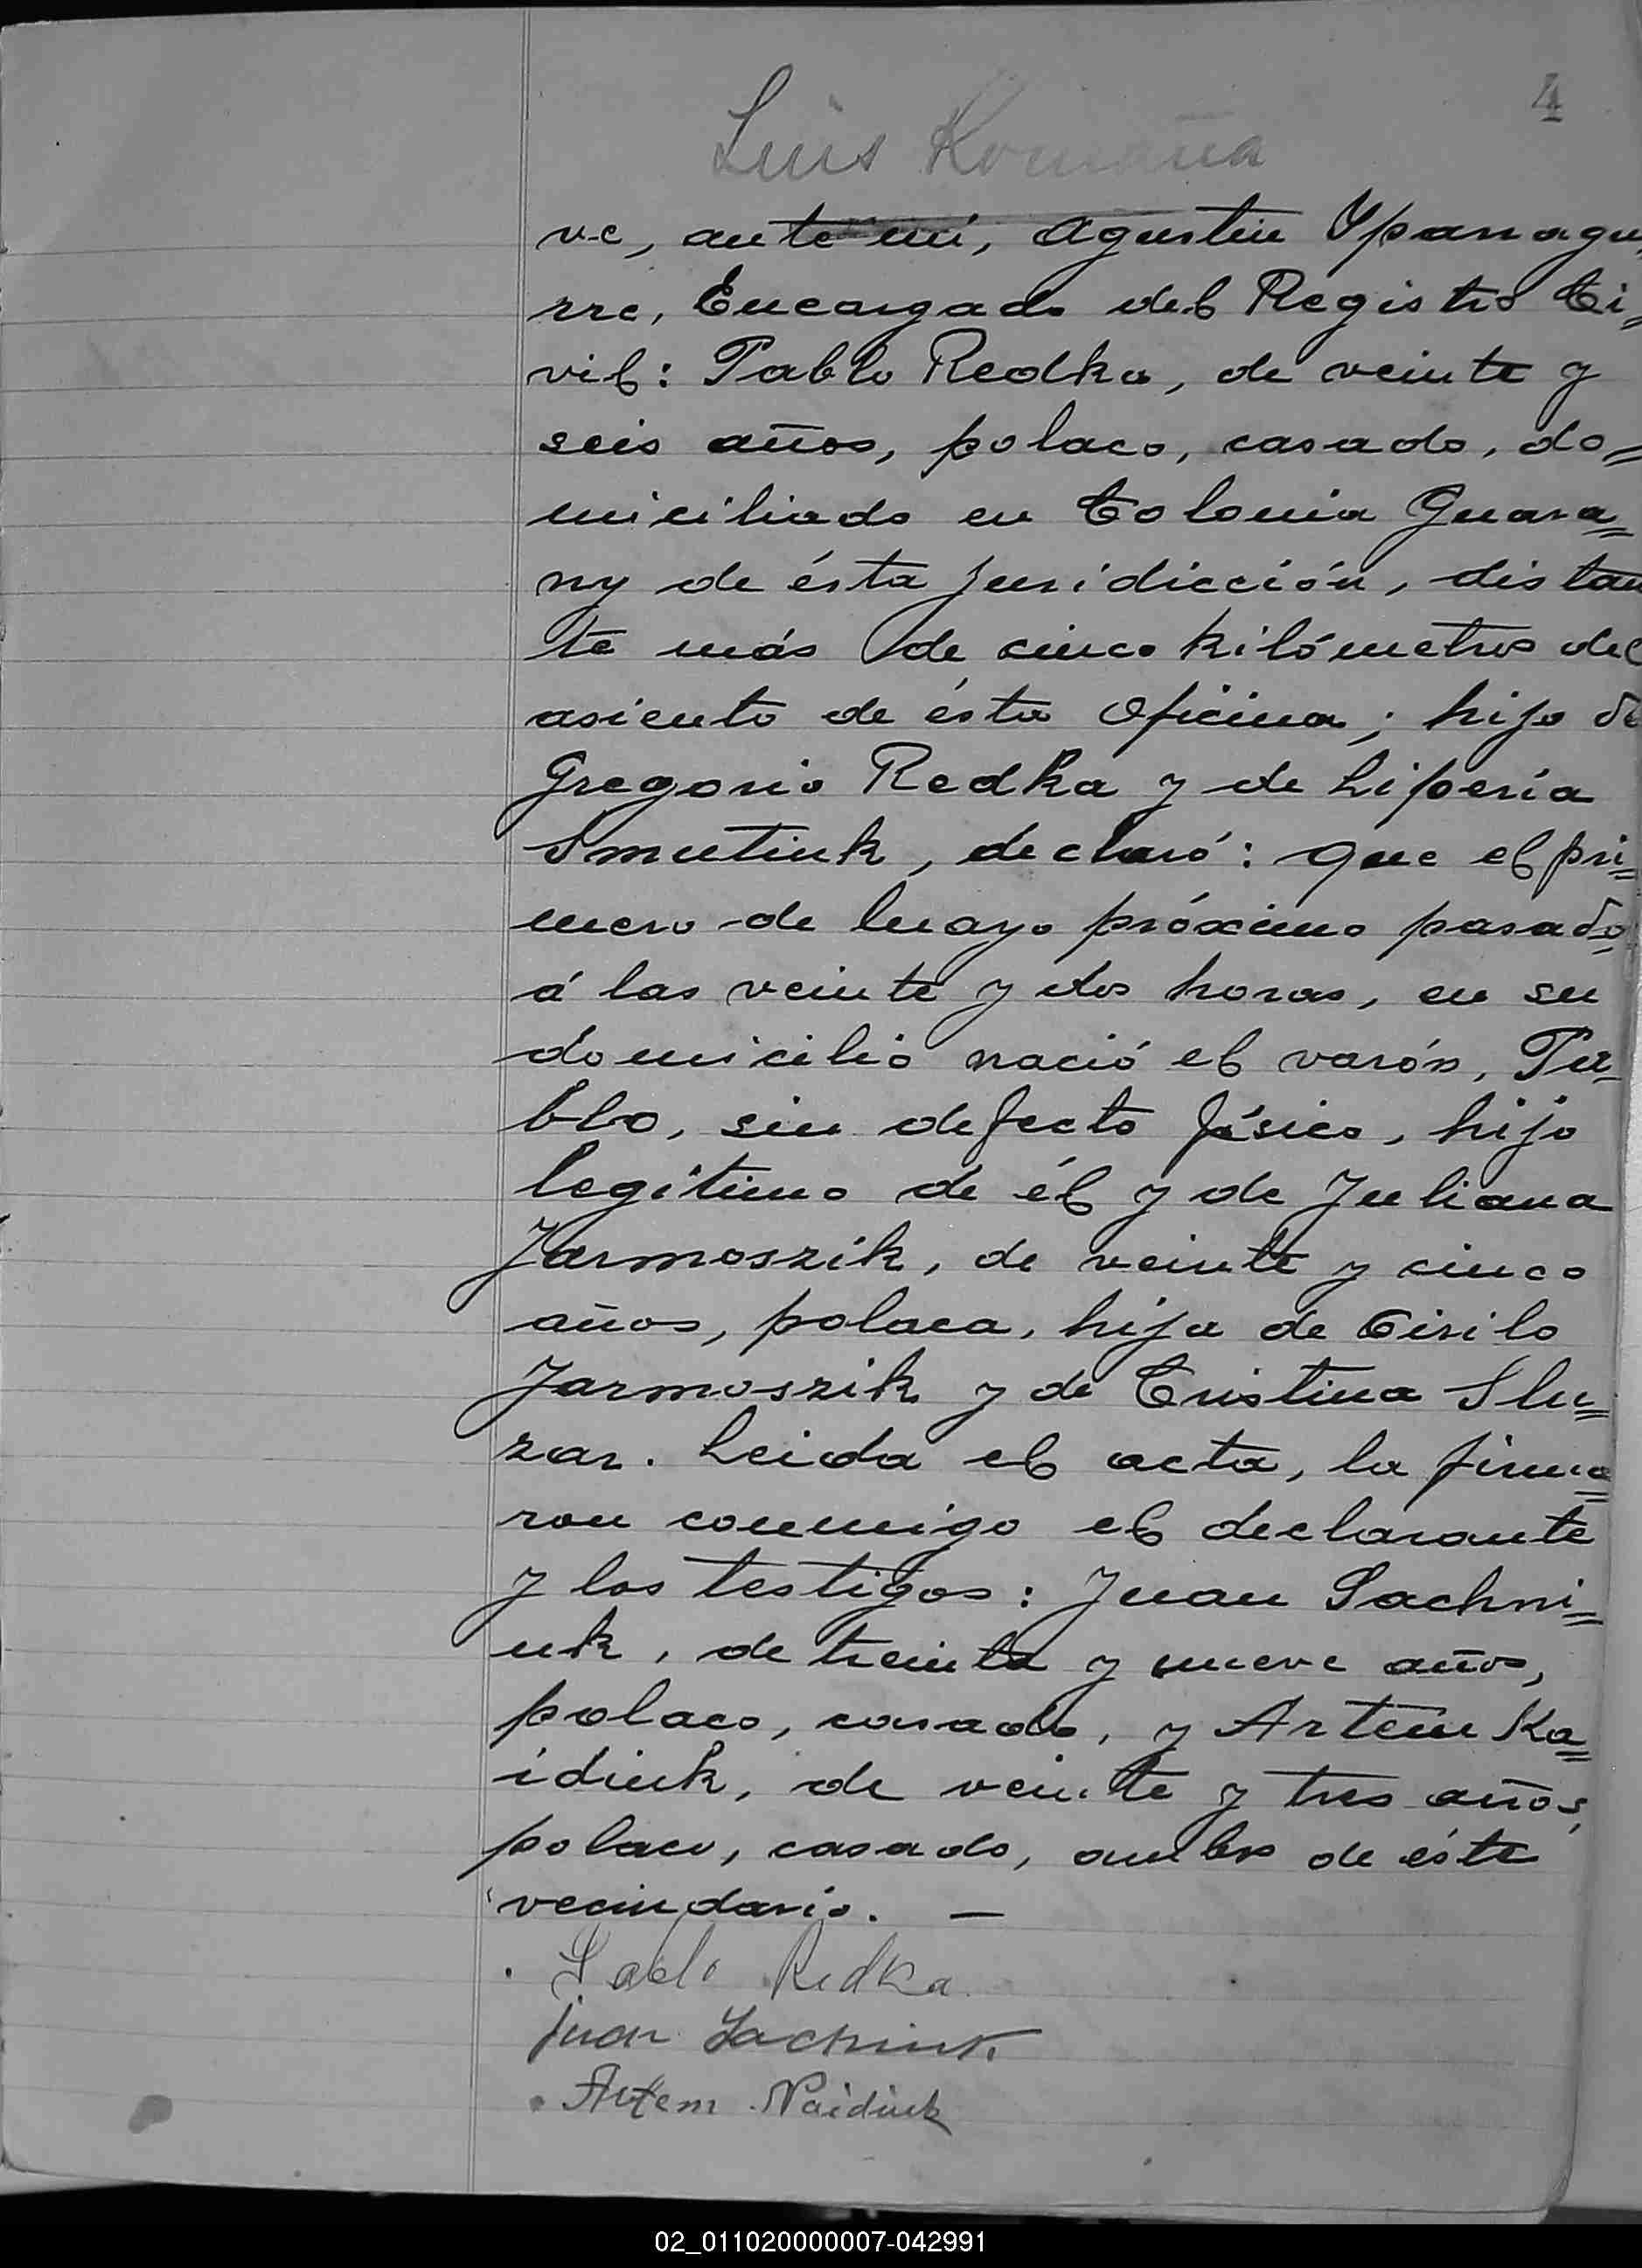 4
Luis Romaña
ve, ante mí, Agustin Yparragu
rre, Encargado del Registro Ci=
vil: Pablo Redka, de veinte y
seis años, polaco, casado, do=
miciliado en Colonia Guara=
ny de ésta juridicción, distan
te más de cinco kilómetros del
asiento de ésta Oficina; hijo de
Gregorio Redka y de Liperia
Smutiuk, declaró: que el pri=
mero de mayo próximo pasado,
á las veinte y dos horas, en su
domicilio nació el varón, Pa=
blo, sin defecto físico, hijo
legítimo de él y de Juliana
Jarmoszik, de veinte y cinco
años, polaca, hija de Cirilo
Jarmoszik y de Cristina Slu=
zar. Leida el acta, la firma=
ron conmigo el declarante
y los testigos: Juan Sachni=
uk, de treinta y nueve años,
polaco, casado, y Artem Ka=
idiuk, de veinte y tres años,
polaco, casado, ambos de éste
vecindario. —
Pablo Redka
Juan
Artem Naidiuk
02_011020000007-042991